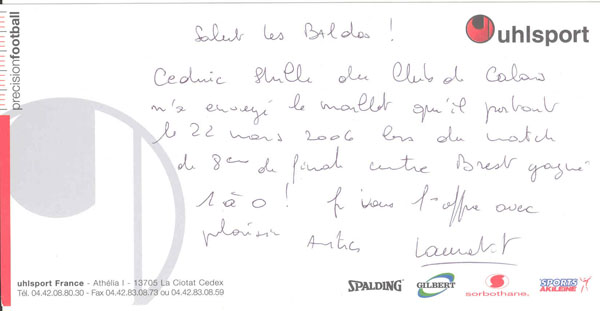 Salut les Baldos !
uhlsport
precisionfootball
Cedric Stulle du Club de Calais
m'a envoyé le maillot qu'il portait
le 22 mars 2006 lors du match
de 8eme de finale contre Brest gagné
1 à 0 ! Je vous l'offre avec
plaisir
Laurent.T
uhlsport France - Athélia I - 13705 La Ciotat Cedex
Tél. 04.42.08.80.30 - Fax 04.42.83.08.73 ou 04.42.83.08.59
SPALDING
GILBERT
sorbothane.
SPORTS AKILEINE